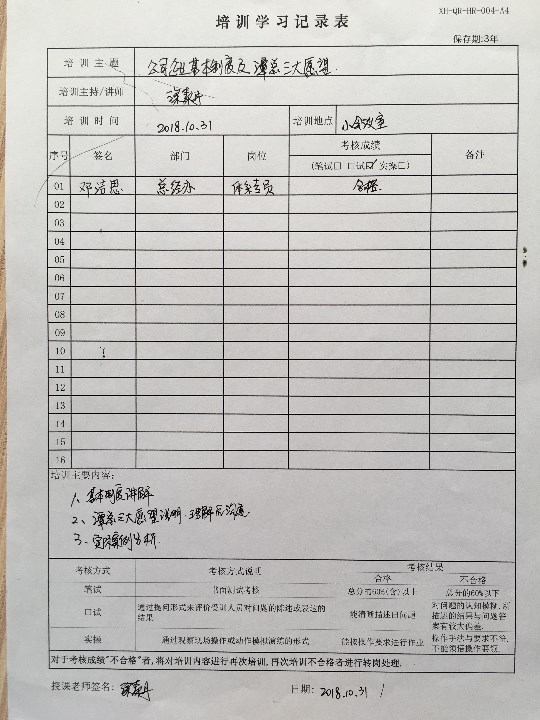 XH-QR-HR-004-A4
培训学习记录表
保存期:3年
培训主题 公司企业基本制度及谭总三大愿望
培训主持/讲师
培训时间 2018.10.31 培训地点 小会议室
序号 签名 部门 岗位 考核成绩 备注
(笔试□ 口试☑ 实操□)
01 邓洁思 总经办 体系专员 合格
02
03
04
05
06
07
08
09
10
11
12
13
14
15
16
培训主要内容:
1、基本制度讲解
2、谭总三大愿望说明、理解及沟通
3、实际案例分析
考核方式 考核方式说明 考核结果
合格 不合格
笔试 书面测试考核 总分的60%(含)以上 总分的60%以下
口试 通过提问形式来评价受训人员对问题的陈述或表达的结果 能清晰描述日问题 对问题的认知模糊,所描述的结果与问题答案有较大偏差.
实操 通过现场操作或动作模拟演练的形式 能按操作要求进行作业 操作手法与要求不符,不能领悟操作要领.
对于考核成绩"不合格"者,将对培训内容进行再次培训,再次培训不合格者进行转岗处理.
授课老师签名: 日期: 2018.10.31